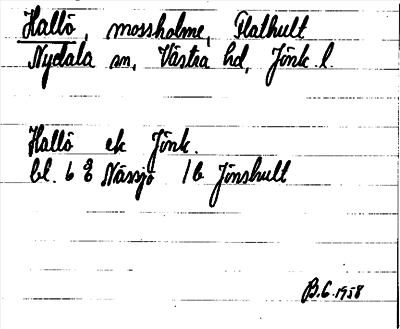 Hallö, mossholme, Flathult
Nydala sn, Västra hd, Jönk. l.
Hallö ek Jönk.
bl. 6 Nässjö 1b Jönshult
B.G. 1958